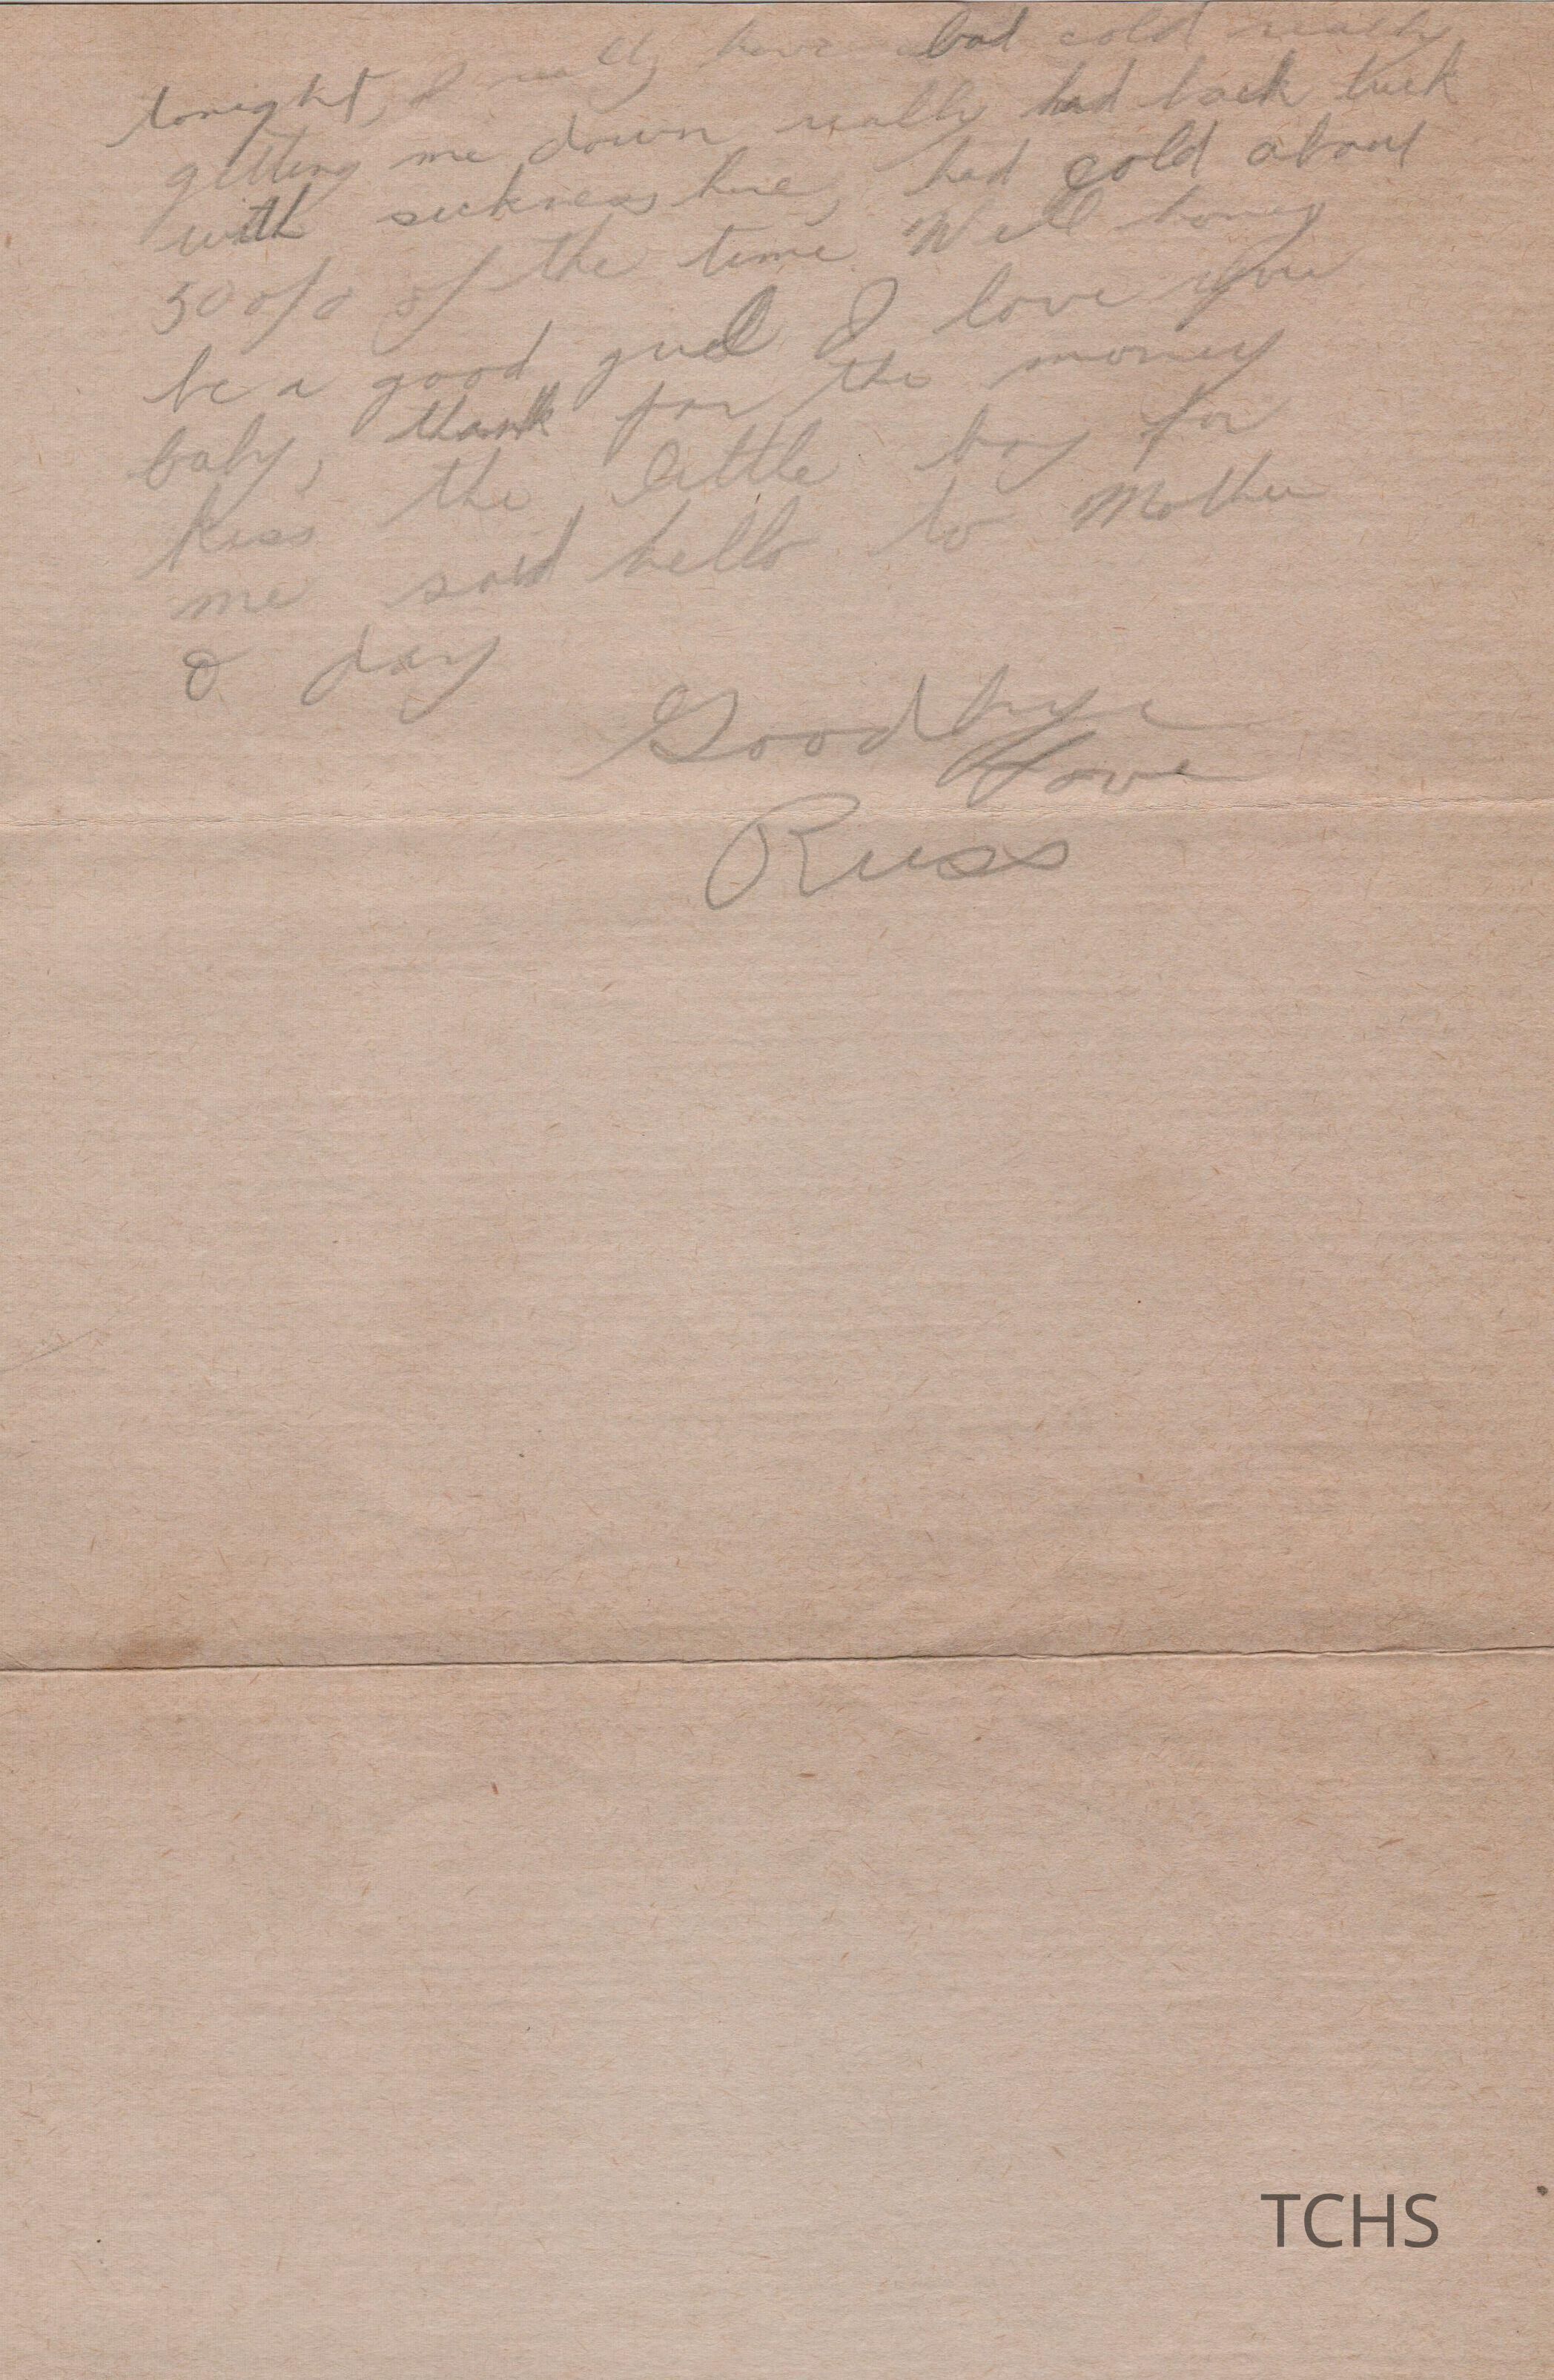 tonight, I really have bad cold really
getting me down really had back luck
with sickness here, had cold about
50 o/o of the time. Well honey
be a good girl I love you
baby, thank for the money
Kiss the little boy for
me said hello to Mother
& day
Goodbye
Love
Russ
TCHS